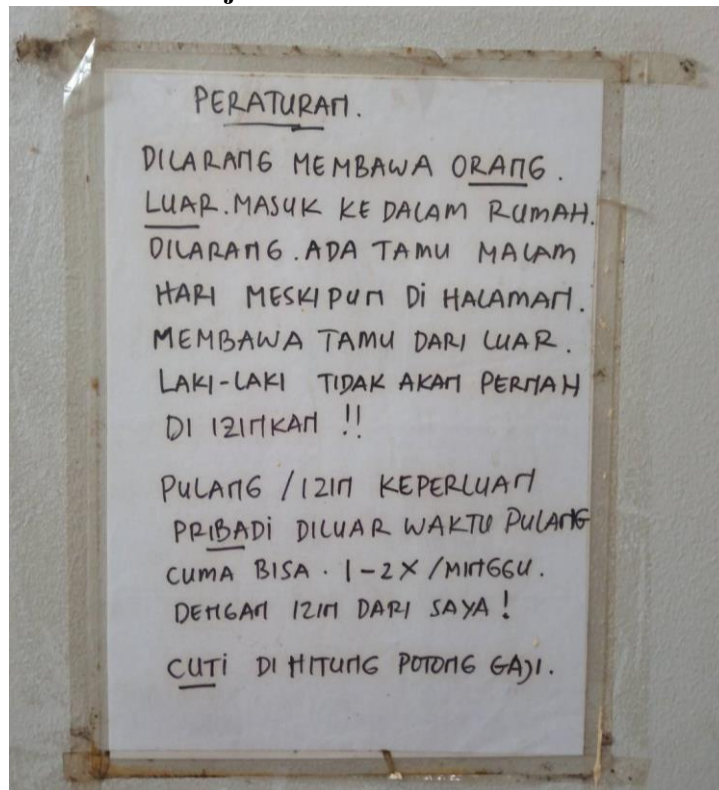 PERATURAN.
DILARANG MEMBAWA ORANG.
LUAR. MASUK KE DALAM RUMAH.
DILARANG. ADA TAMU MALAM
HARI MESKIPUN Di HALAMAN.
MEMBAWA TAMU DARI LUAR.
LAKI-LAKI TIDAK AKAN PERNAH
DI IZINKAN !!
PULANG / IZIN KEPERLUAN
PRIBADi DILUAR WAKTU PULANG
CUMA BISA. 1-2X /MINGGU.
DENGAN IZIN DARI SAYA !
CUTi DI HITUNG POTONG GAJI.